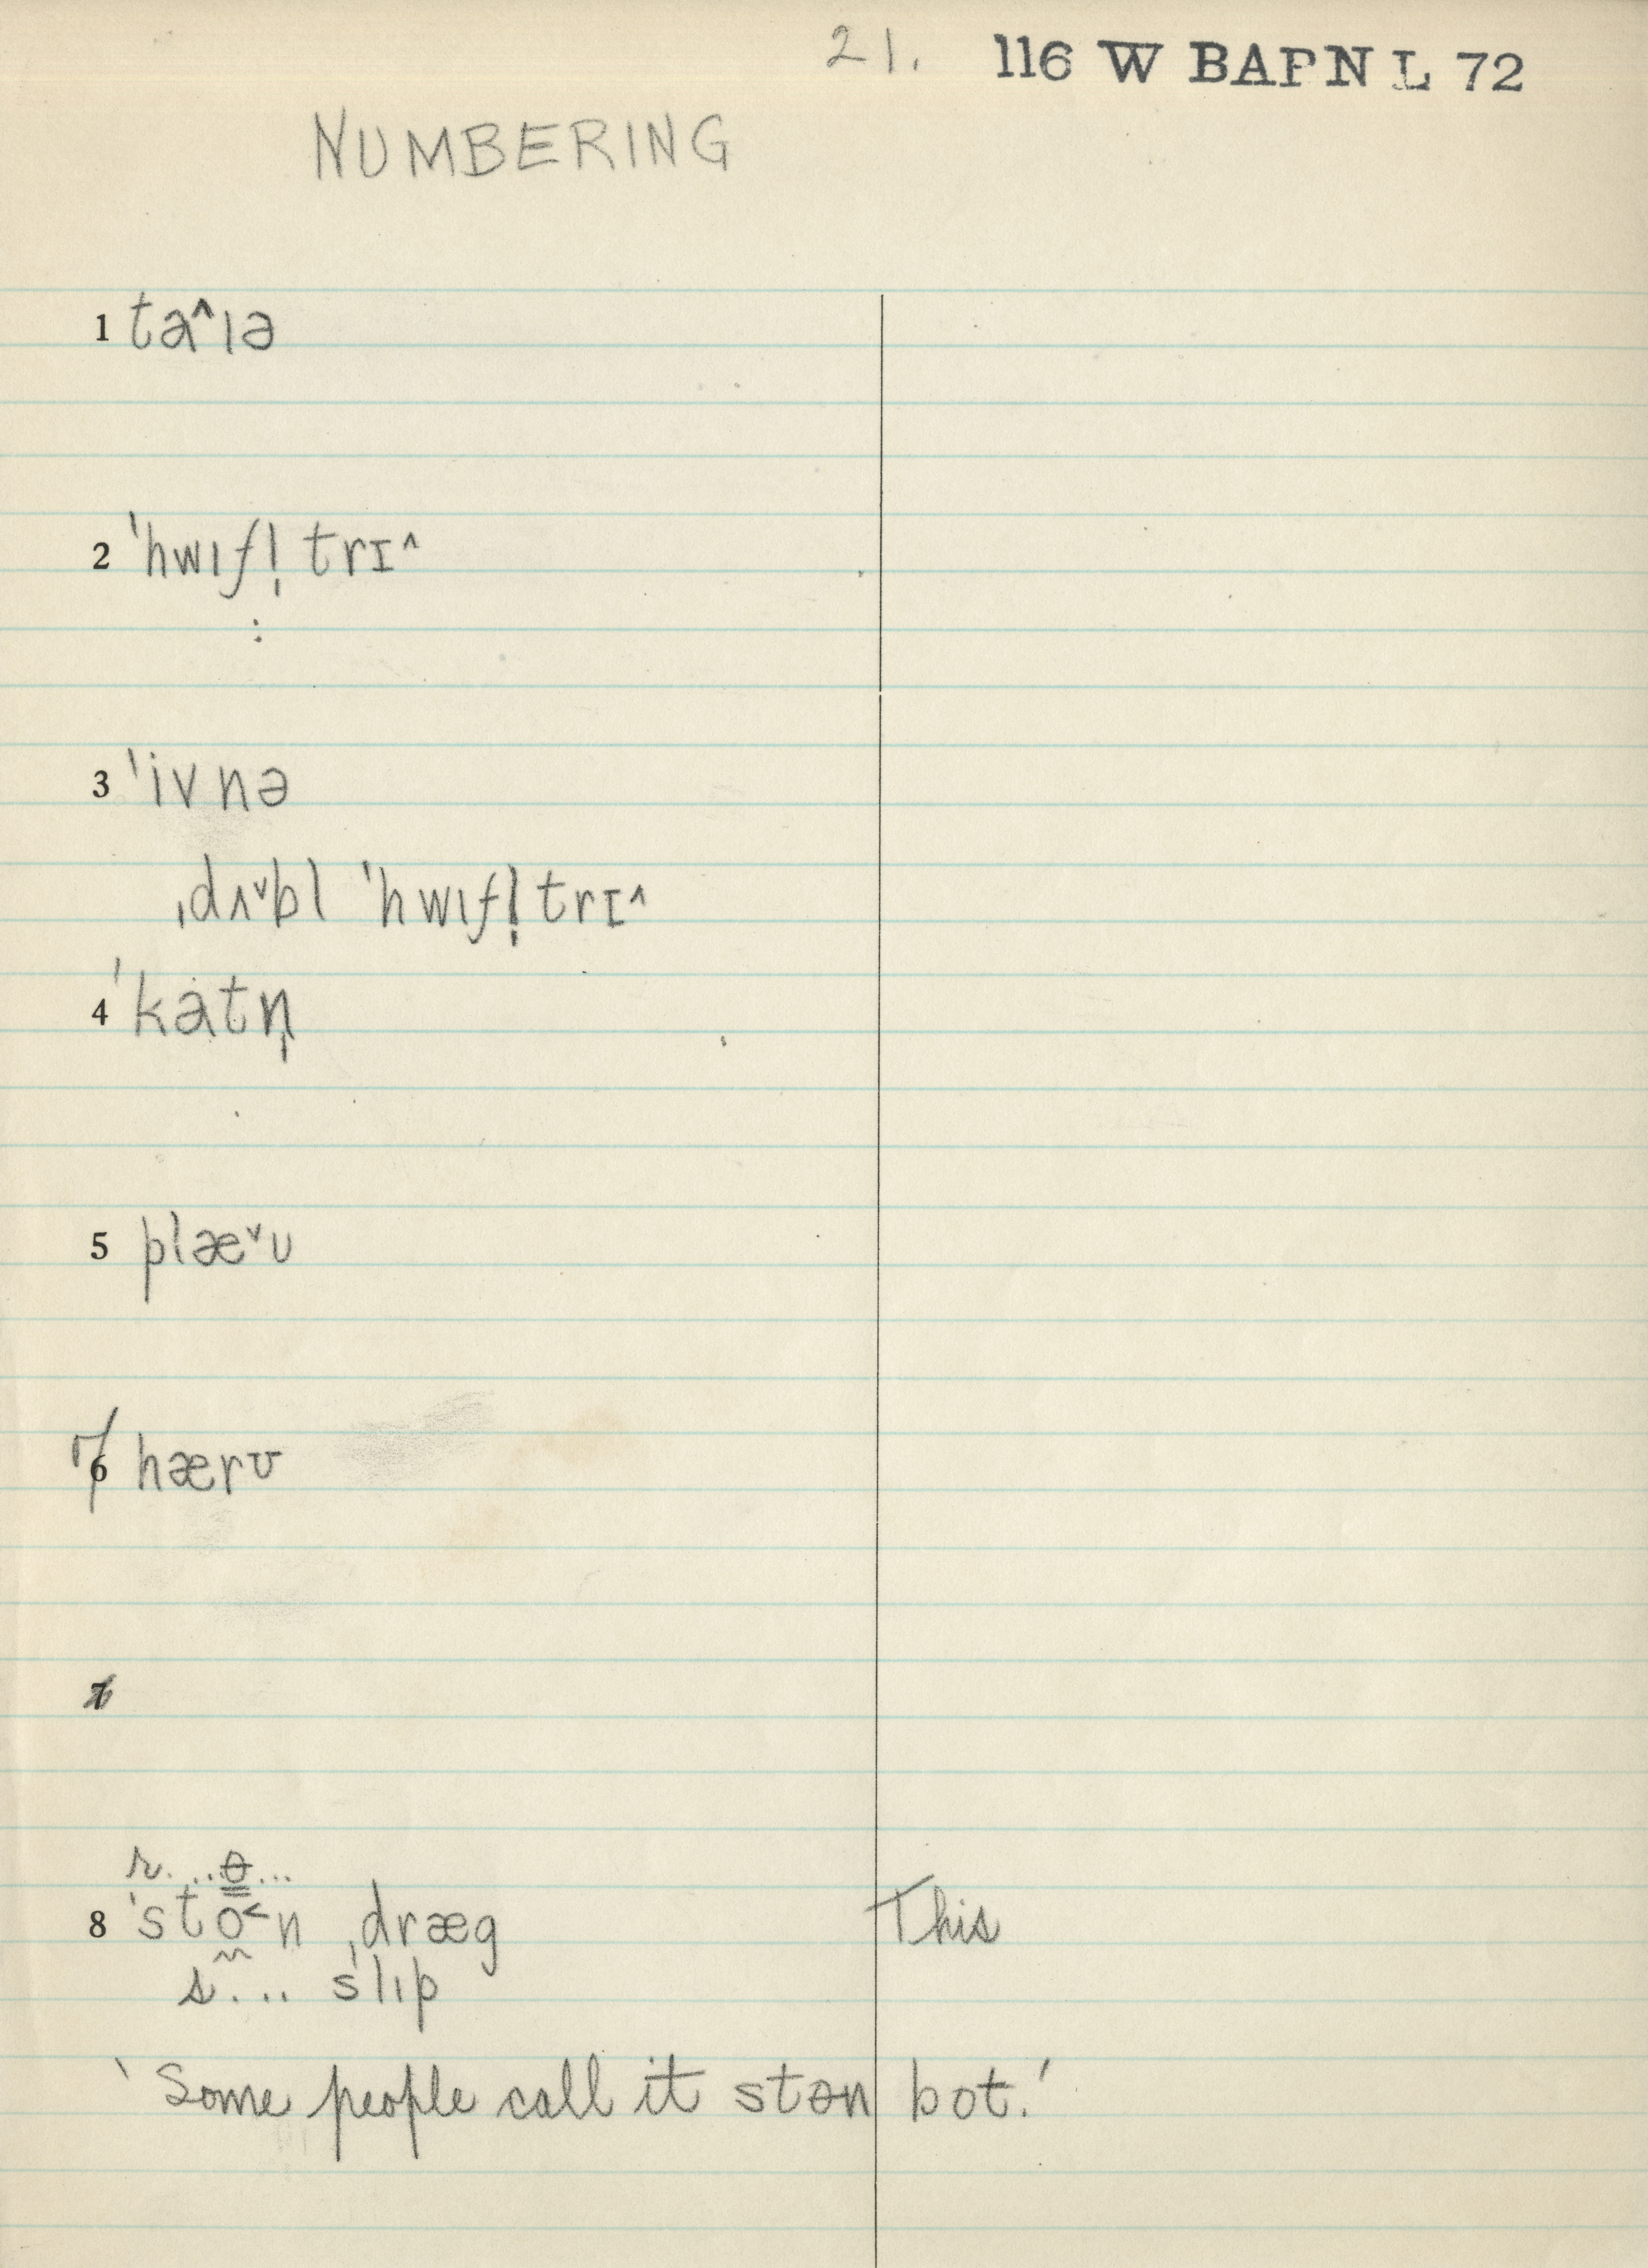 21. 116 W BAPN L 72
NUMBERING
1 ta^ɪə
2 ˈhwɪfl̩ trɪ^
:
3 ˈivnə
ˌdʌˇbl ˈhwɪfl̩ trɪ^
4 ˈkatn̩
5 plæˇu
7 hærʊ
r. ..ɵ...
8 ˈsto˂n ˌdræg This
s... slɪp
‘Some people call it stɵn bot.’